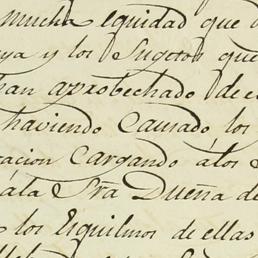 mucha equidad que
ya y los Sugetos que
han aprobechado de
haviendo Causado los
racion Cargando álos
ála Sra Dueña de
los Esquilmos de ellas